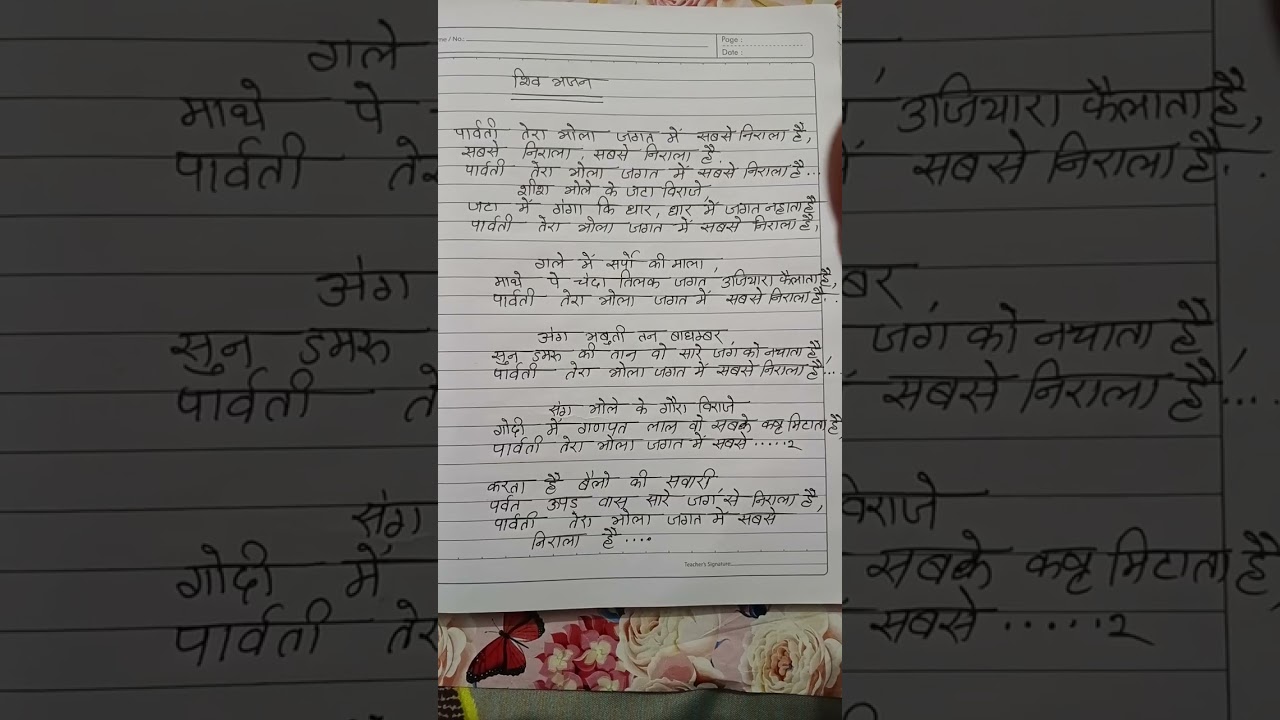 me / No.:
Page :
Date :
शिव भजन
पार्वती तेरा भोला जगत में सबसे निराला है,
सबसे निराला, सबसे निराला है
पार्वती तेरा भोला जगत में सबसे निराला है...
शीश भोले के जटा विराजे
जटा में गंगा कि धार, धार में जगत नहाता है
पार्वती तेरा भोला जगत में सबसे निराला है,
गले में सर्पो की माला,
माथे पे चंदा तिलक जगत उजियारा फैलाता है,
पार्वती तेरा भोला जगत में सबसे निराला है...
अंग भबुती तन बाघम्बर,
सुन डमरू की तान वो सारे जग को नचाता है,
पार्वती तेरा भोला जगत में सबसे निराला है....
संग भोले के गौरा विराजे
गोदी में गणपत लाल वो सबके कष्ट मिटाता है,
पार्वती तेरा भोला जगत में सबसे .....२
करता है बैलो की सवारी,
पर्वत वासू सारे जग से निराला है,
पार्वती तेरा भोला जगत में सबसे
निराला है ....
Teacher's Signature